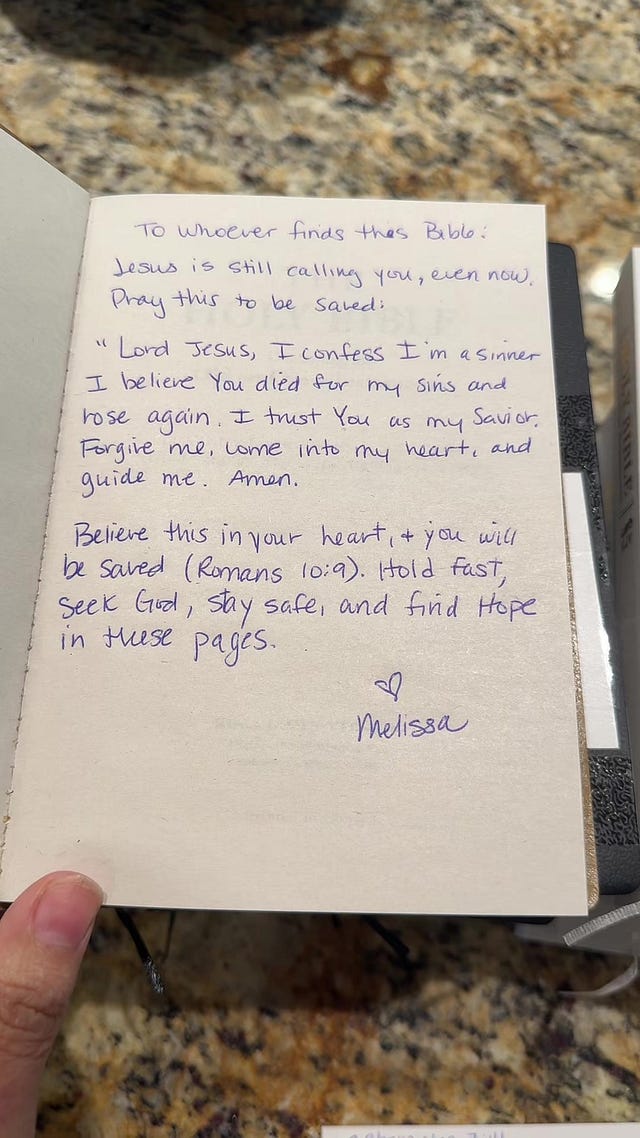 To whoever finds this Bible:
Jesus is still calling you, even now.
Pray this to be saved:
" Lord Jesus, I confess I'm a sinner
I believe You died for my sins and
rose again. I trust You as my Savior.
Forgive me, come into my heart, and
guide me. Amen.
Believe this in your heart, + you will
be saved (Romans 10:9). Hold fast,
seek God, stay safe, and find Hope
in these pages.
♡
Melissa
HOLY BIBLE